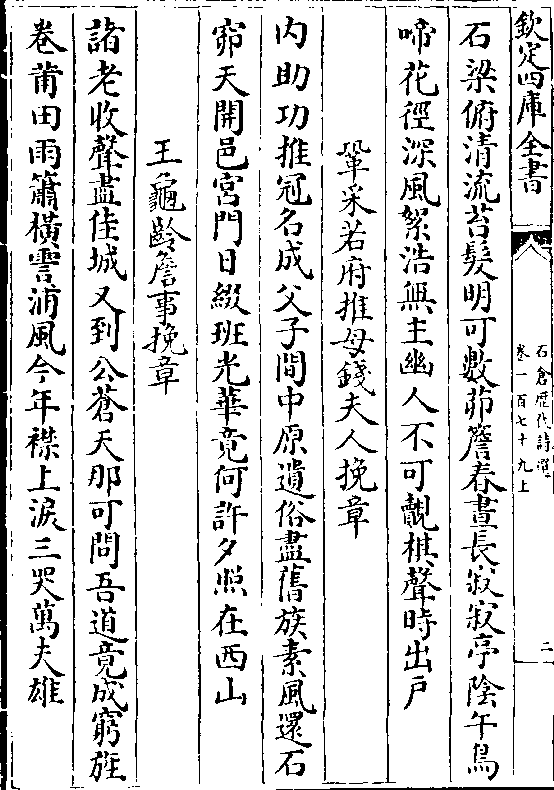 欽定四庫全書
石倉歷代詩選
卷一百七十九上
二
石梁俯清流苔髮明可數茆簷春晝長寂寂亭陰午鳥
啼花徑深風絮浩無主幽人不可覿棋聲時出戶
鞏采若府推母錢夫人挽章
内助功推冠名成父子間中原遺俗盡舊族素風還石
窌天開邑宫門日綴班光華竟何許夕照在西山
王龜齡詹事挽章
諸老收聲盡佳城又到公蒼天那可問吾道竟成窮旌
卷莆田雨簫橫霅浦風今年襟上淚三哭萬夫雄